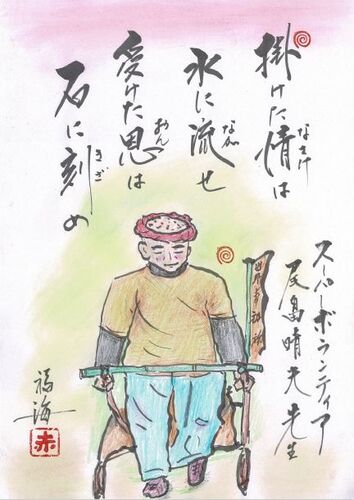 掛けた情は
なさけ
水に流せ
なが
受けた恩は
おん
石に刻め
きざ
スーパーボランティア
尾畠晴夫先生
福海
赤